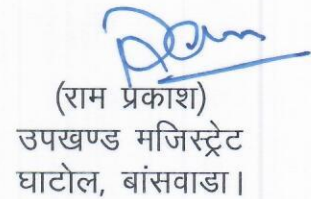 (राम प्रकाश)
उपखण्ड मजिस्ट्रेट
घाटोल, बांसवाडा।